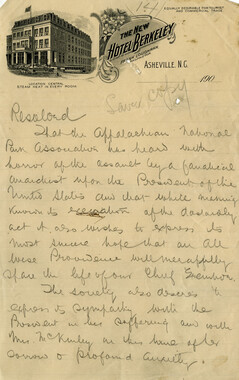 14
EQUALLY DESIRABLE FOR TOURIST
AND COMMERCIAL TRADE
THE NEW
HOTEL BERKELEY
ASHEVILLE, N.C.
LOCATION CENTRAL
STEAM HEAT IN EVERY ROOM
190
Saved copy
Resolved
That the Appalachian National
Park Association has heard with
horror of the assault by a fanatical
anarchist upon the President of the
United States and that while making
known its execration of the dastardly
act it also wishes to express its
most sincere hope that an All
wise Providence will mercifully
spare the life of our Chief Executive.
The society also desires to
express its sympathy with the
President in his suffering and with
Mrs. McKinley in this time of her
sorrow & profound anxiety.